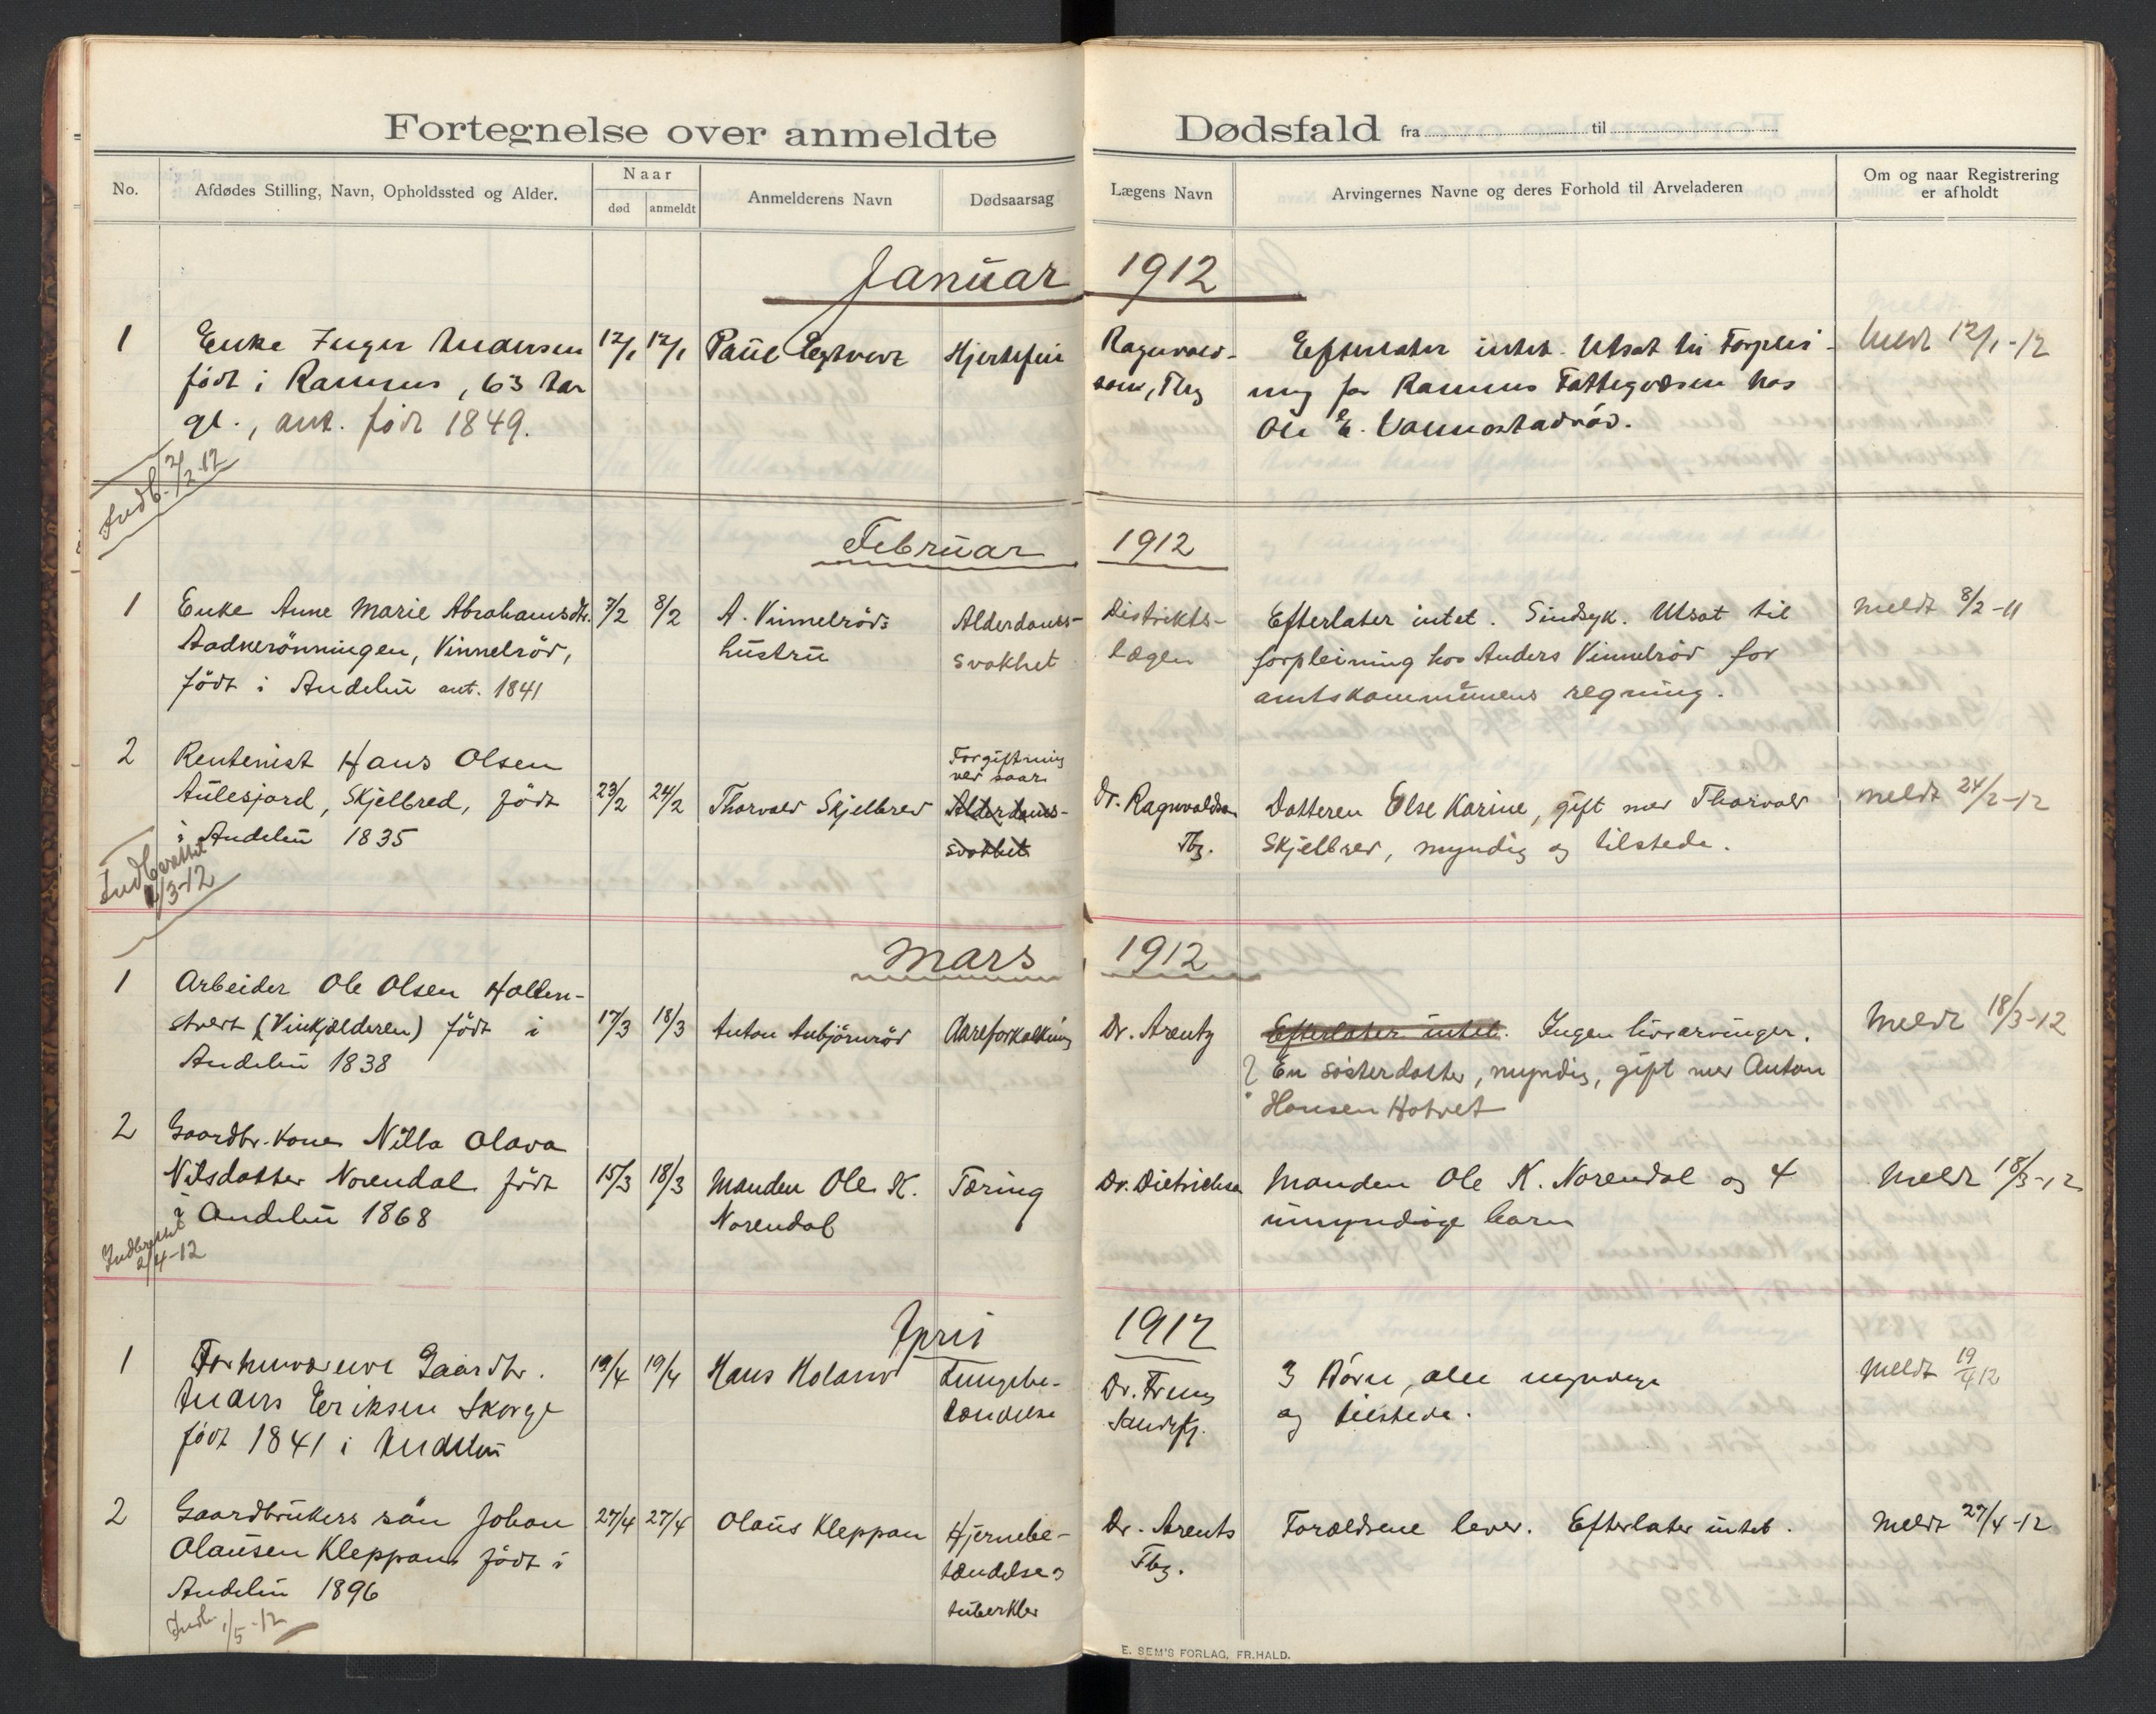 Fortegnelse over anmeldte Dødsfald fra til
No.
Afdødes Stilling, Navn, Opholdssted og Alder.
Naar
død anmeldt
Anmelderens Navn
Dødsaarsag
Lægens Navn
Arvingernes Navne og deres Forhold til Arveladeren
Om og naar Registrering
er afholdt
Januar 1912
1
Enke Inger Andersen
født i Ramnes, 63 aar
gl., ant. født 1849.
12/1 12/1
Paul
Hjertefeil
Ragnvald-
sen, Tbg
Efterlater intet. Utsat til Forplei-
ning for Ramnes Fattigvæsen hos
Ole E.
Meldt 12/1-12
Indb. 2/2-12
Februar 1912
1
Enke Anne Marie Abrahamsdtr.
Aadnerønningen, Vinnelrød,
født i Andebu ant. 1841
7/2 8/2
A. Vinnelrøds
hustru
Alderdoms-
svakhet
Distrikts-
lægen
Efterlater intet. Sindsyk. Utsat til
forpleining hos Anders Vinnelrød for
amtskommunens regning.
meldt 8/2-11
2
Rentenist Hans Olsen
Aulesjord, Skjelbred, født
i Andebu 1835
23/2 24/2
Thorvald Skjelbred
Forgiftning
ved saar
Alderdoms-
svakhet
Dr. Ragnvaldsen
Tbg.
Datteren Else Karine, gift med Thorvald
Skjelbred, myndig og tilstede.
meldt 24/2-12
Indberettet
2/3-12
Mars 1912
1
Arbeider Ole Olsen Holten-
stvert (Vinkjælderen) født i
Andebu 1838
17/3 18/3
Anton Anbjørnrød
Aareforkalkning
Dr. Arentz
Efterlater intet. Ingen livsarvinger.
? En søsterdatter, myndig, gift med Anton
Hansen Hotvet
Meldt 18/3-12
2
Gaardbr.kone Nilla Olava
Nilsdatter Norendal født
i Andebu 1868
15/3 18/3
Manden Ole K.
Norendal
Tæring
Dr. Dietrichsen
Manden Ole K. Norendal og 4
umyndige barn
Meldt 18/3-12
Indberettet
2/4-12
April 1912
1
Forhenværende Gaardbr.
Anders Eriksen Skorge
født 1841 i Andebu
19/4 19/4
Hans Holand
Lungebe-
tændelse
Dr.
Sandefj.
3 Børn, alle myndige
og tilstede.
Meldt 19/4 12
2
Gaardbrukers søn Johan
Olausen Kleppan født i
Andebu 1896
27/4 27/4
Olaus Kleppan
Hjernebe-
tændelse
tuberkler
Dr. Arents
Tbg.
Forældrene lever. Efterlater intet.
Meldt 27/4-12
Indb. 1/5-12
E. SEM'S FORLAG, FR.HALD.